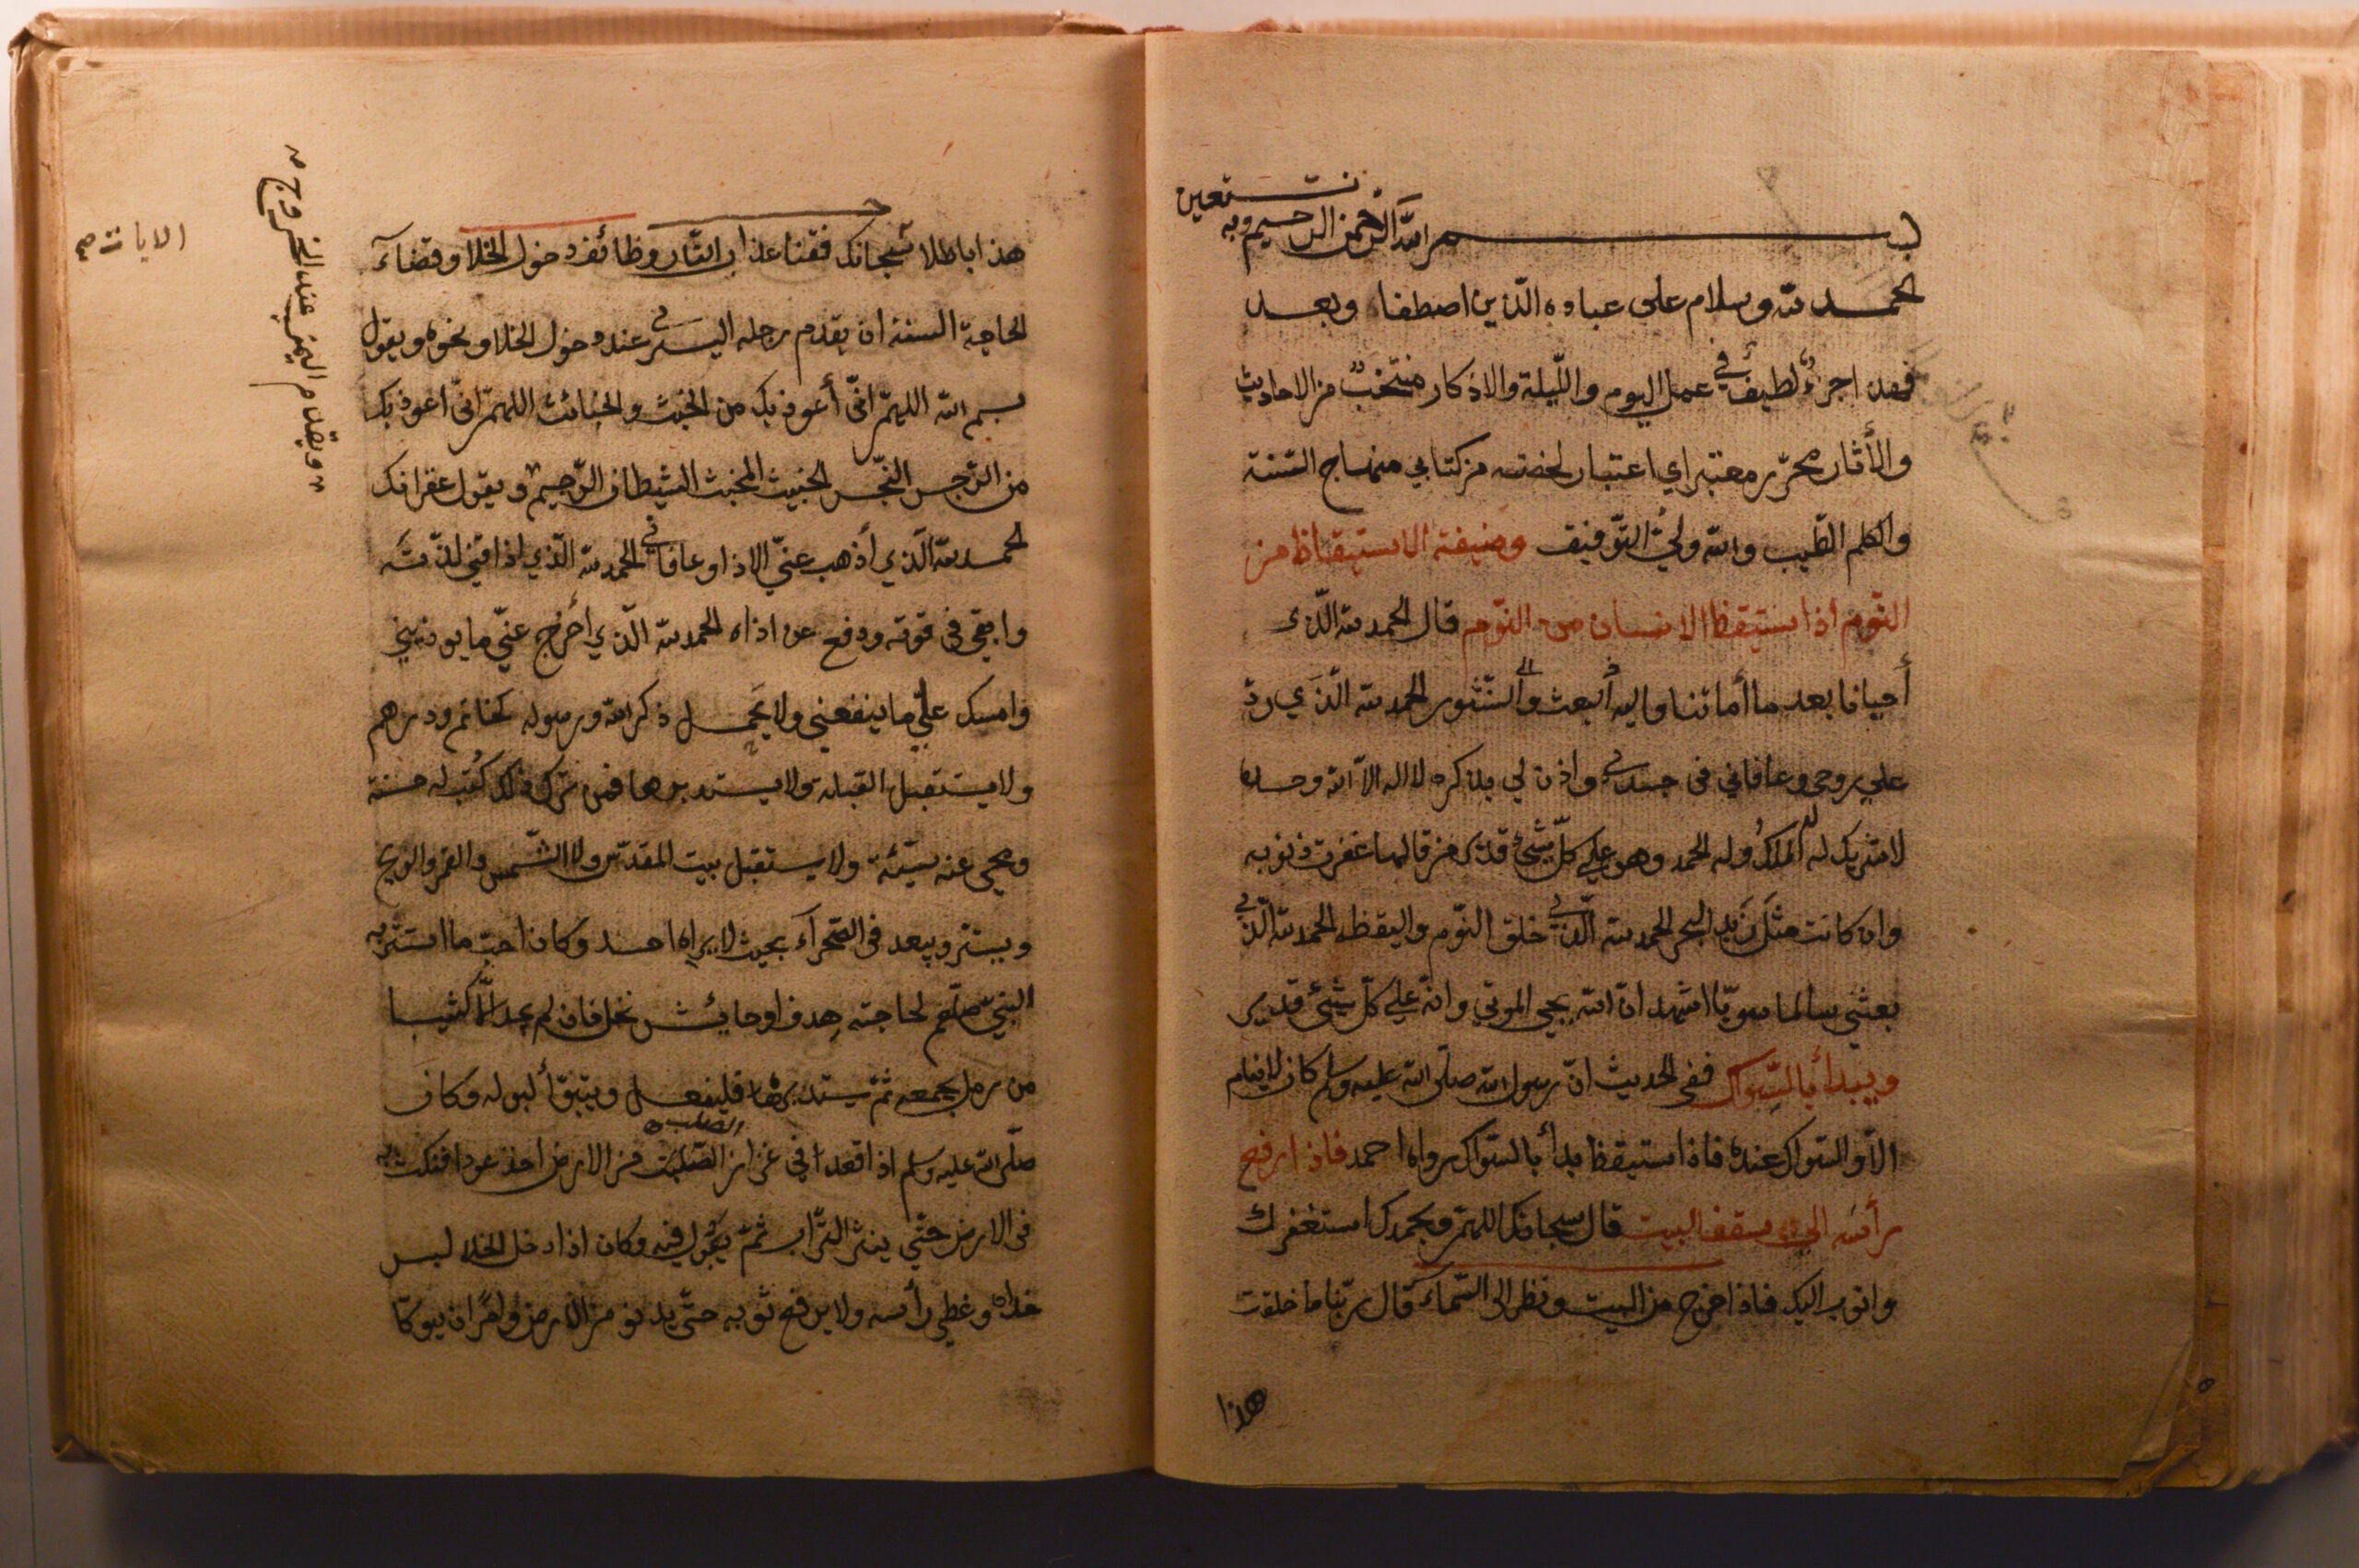 بسم الله الرحمن الرحيم وبه نستعين
الحمد لله وسلام على عباده الّذين اصطفا وبعد
فهذا جزءٌ لطيفٌ في عمل اليوم واللّيلة والاذكار منتخبٌ من الاحاديث
والأثار محرّر معتبر اي اعتبار لخصته من كتابي منهاج السّنة
والكلم الطّيب والله وليُّ التّوفيق وضيفة الاستيقاظ من
النّوم اذا استيقظ الانسان من النّوم قال الحمد لله الّذى
أحيانا بعد ما أماتنا واليه البعث والنّشور الحمد لله الّذي ردّ
علي روحى وعافاني فى جسدي واذن لي بذكره لا اله الاّ الله وحده
لا شريك له له الملكُ وله الحمد وهو علي كلّ شئ قدير من قالها غفرت ذنوبه
وان كانت مثلَ زَبد البحر الحمد لله الّذي خلق النّوم واليقظه الحمد لله الّذي
بعثني سالما سويّا اشهد انّ الله يحيي الموتي وانّه علي كلّ شئ قدير
ويبدأ بالسِّواك ففى الحديث انّ رسول الله صلّى الله عليه وسلم كان لا ينام
الاّ والسّواك عنده فاذا استيقظ بدأ بالسّواك رواه احمد فاذا رفع
رأسَه الي سقف البيت قال سبحانك اللهمّ وبحمدك استغفرك
واتوب اليك فاذا خرج من البيت ونظر الى السّماءَ قال ربّنا ما خلقت
هذا
هذا باطلا سبحانك فقنا عذاب النّار وظائف دخول الخلا وقضاءَ
الحاجة السنة ان يقدم رجله اليسرى عند دخول الخلا ونحوه ويقول
بسم الله اللهمّ انّي أعوذ بك من الخبث والخبائث اللهمّ انّي اعوذ بك
من الرّجس النّجس الخبيث المخبث الشيطان الرّجيم ويقول غفرانك
الحمد لله الّذي أذهب عنّي الاذا وعافاني الحمد لله الّذي اذاقني لذّته
وابقي فى قوته ودفع عن اذاه الحمد لله الّذي أخرج عنّي ما يوذيني
وامسك عليّ ما ينفعني ولا يَحمل ذكر الله ورسوله كخاتم ودرهم
ولا يستقبل القبلة ولا يستدبرها فمن ترك ذلك كُتب له حسنة
ومحي عنه سيّئة ولا يستقبل بيت المقدّس ولا الشّمس والقمر والريح
ويستتر ويبعد فى الصّحرآء بحيث لا يراه احد وكان احبّ ما استتر به
النبيّ صلّعم لحاجته هدف او حائش نخل فان لم يجد الاّ كثيبا
من رمل يجمعه ثمّ يستدبرها فليفعل ويتبوّأ لبوله وكان
الصلب
صلّى الله عليه وسلم اذا قعد في غزاز الصّلبت من الارض اخذ عودا فنكت به
فى الارض حتّي ينثر التّراب ثمّ يَبُول فيه وكان اذا دخل الخلا لبس
حذاه وغطي رأسه ولا يرفع ثوبه حتّي يدنو من الارض وامر ان يوكا
ويقدم اليمني عند الخروج
الايات صح